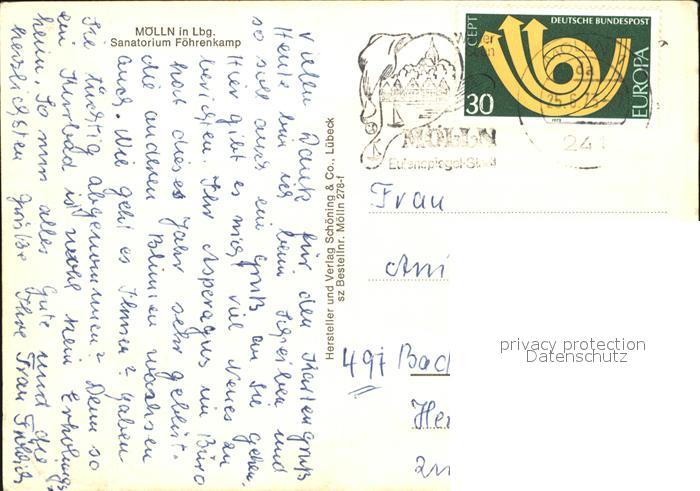 MÖLLN in Lbg.
Sanatorium Föhrenkamp
Vielen Dank für den Kartengruß
Heute bin ich beim Schreiben und
so soll auch ein Gruß an Sie gehen.
Hier gibt es nicht viel Neues zu
berichten. Ihr Asparagus im Büro
hat dieses Jahr sehr geblüht.
die anderen Blumen wachsen
auch. Wie geht es Ihnen? Haben
Sie tüchtig abgenommen? Denn so
ein Kurbad ist wohl kein Erholungs
heim. So nun alles Gute und die
herzlichsten Grüße Ihre Frau
Hersteller und Verlag Schöning & Co., Lübeck
sz Bestellnr. Mölln 278-f
MÖLLN
Eulenspiegel-Stadt
CEPT
DEUTSCHE BUNDESPOST
EUROPA
30
1973
241
Frau
497 Bad
privacy protection
Datenschutz